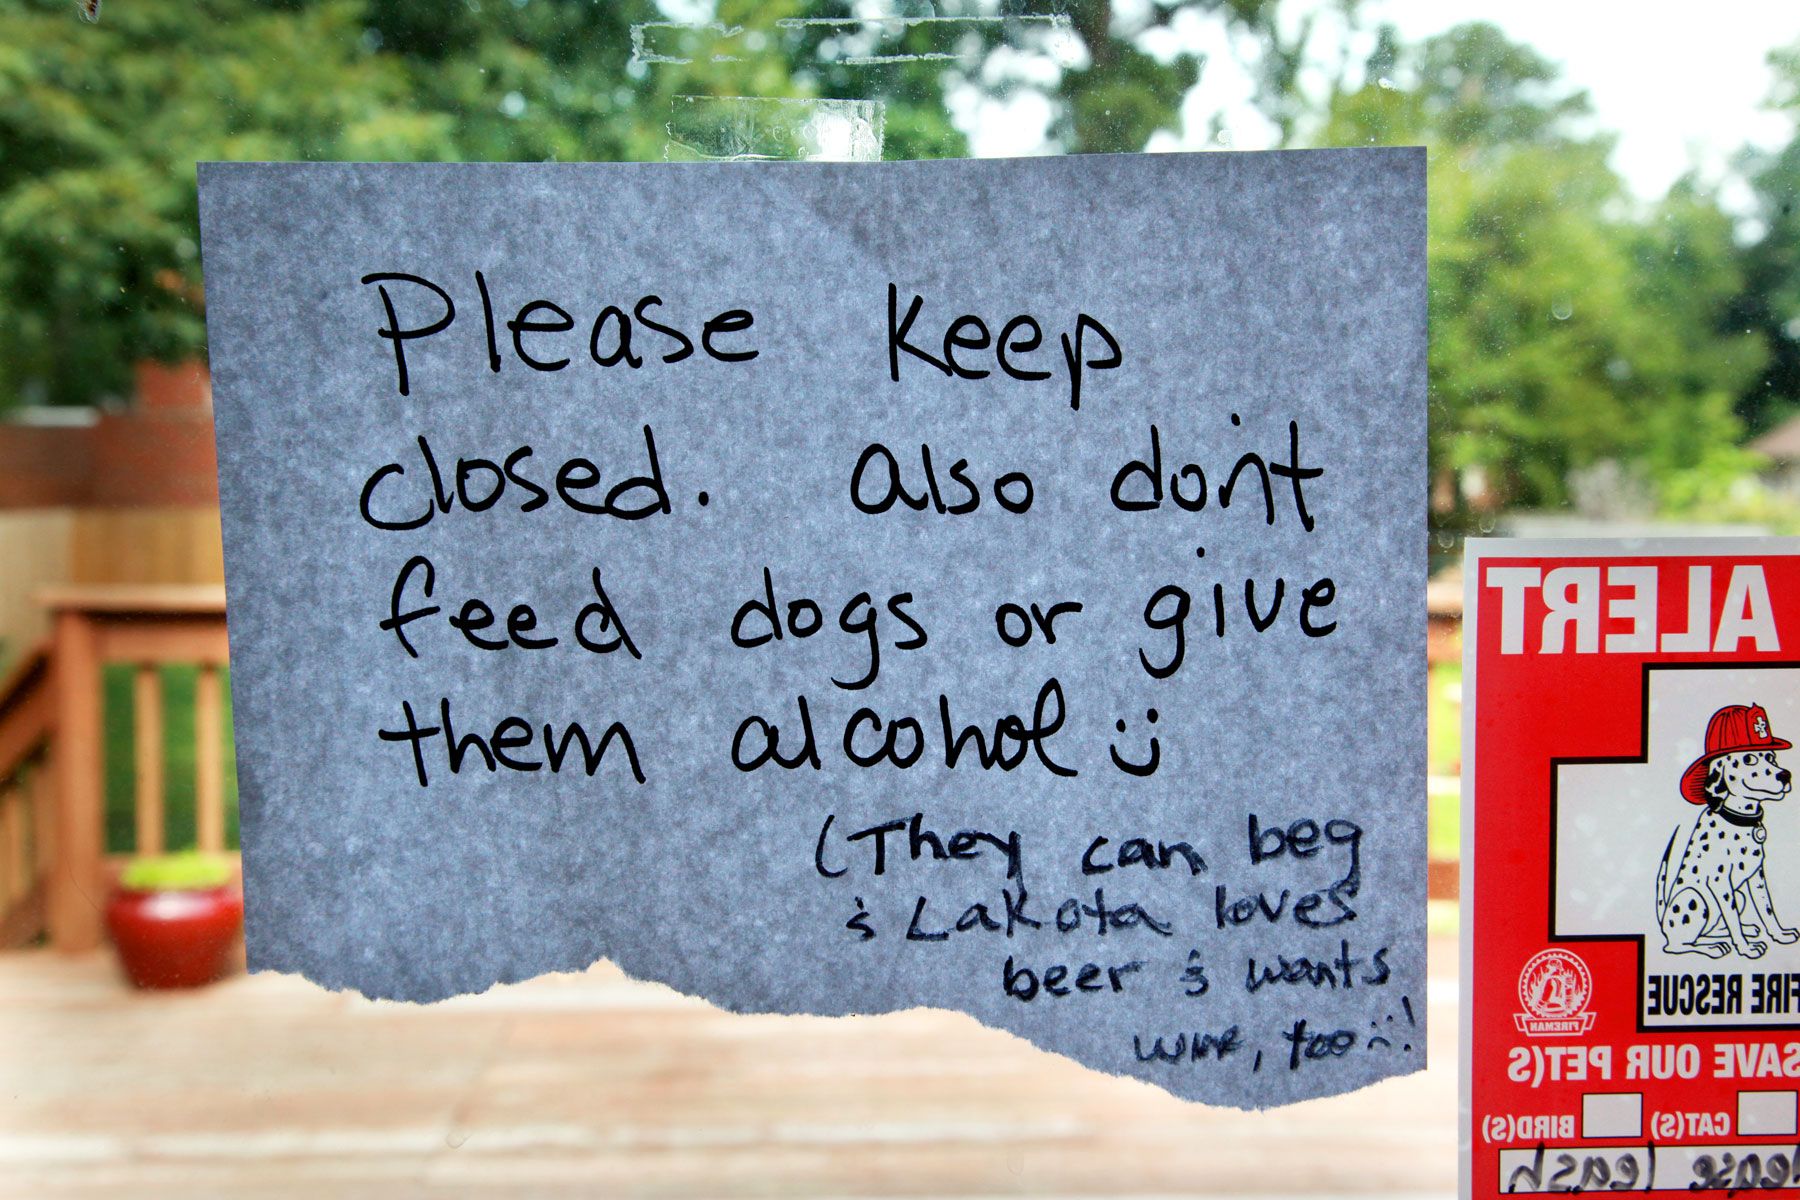 Please keep
closed. Also don't
feed dogs or give
them alcohol :)
(They can beg
& Lakota loves
beer & wants
wine, too :(!
ALERT
FIRE RESCUE
FIREMAN
SAVE OUR PET(S
CAT(S) BIRD(S)
please leash